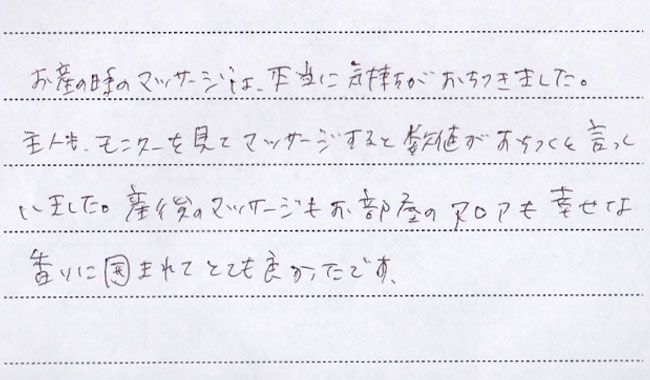 お産の時のマッサージは、本当に気持ちがおちつきました。
主人も、モニターを見てマッサージすると数値がおちつくと言って
いました。産後のマッサージもお部屋のアロマも幸せな
香りに囲まれてとても良かったです、